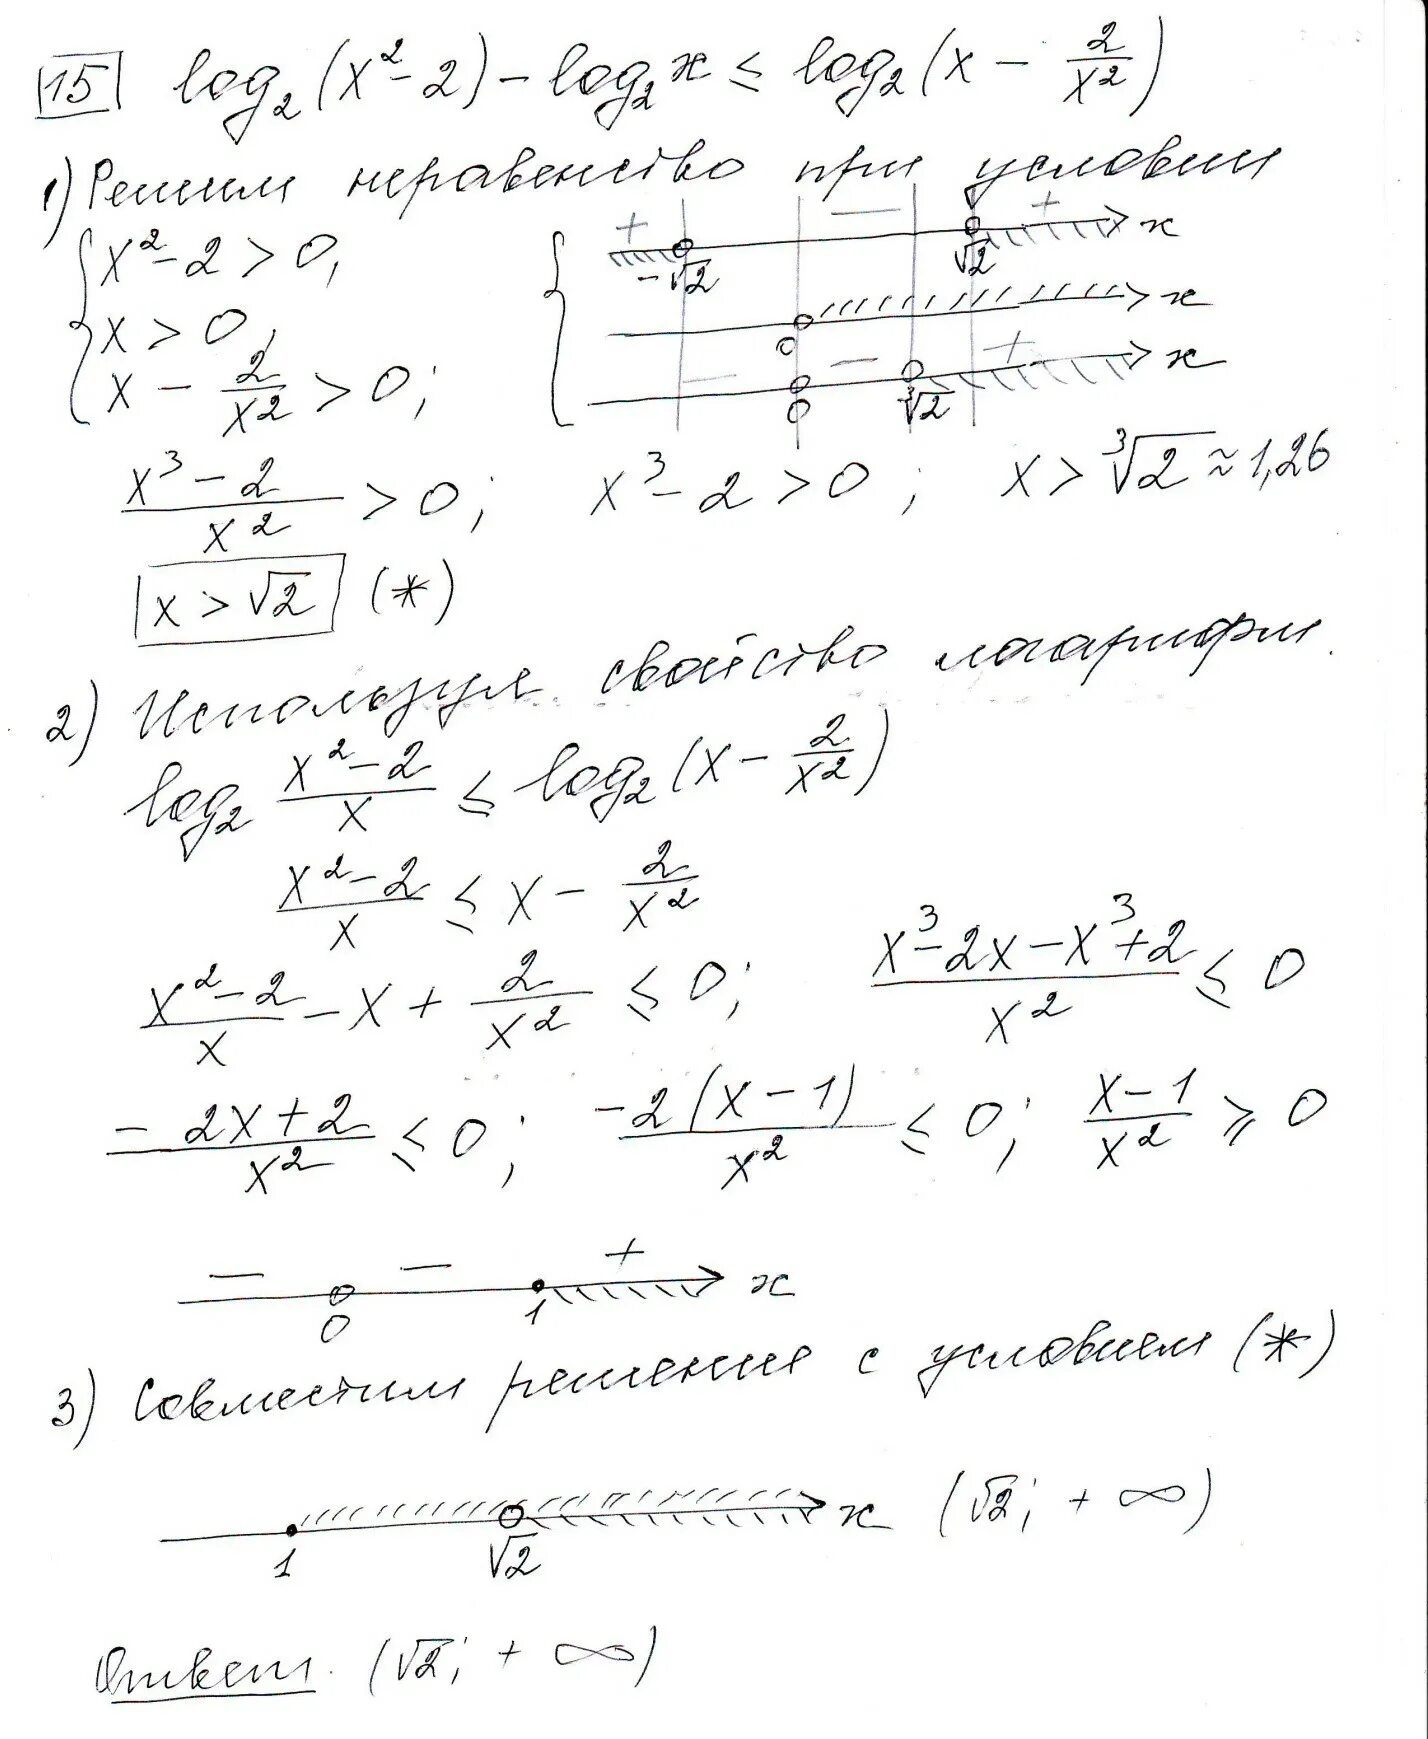 15 log₂(x²-2) - log₂x ≤ log₂(x - 2/x²)
1) Решим неравенство при условии
{ x²-2 > 0,
x > 0,
x - 2/x² > 0;
+ − + x
-√2 √2
x
0
− − + x
0 ³√2
(x³-2)/x² > 0; x³-2 > 0; x > ³√2 ≈ 1,26
x > √2 (*)
2) Используя свойство логарифм.
log₂ (x²-2)/x ≤ log₂(x - 2/x²)
(x²-2)/x ≤ x - 2/x²
(x²-2)/x - x + 2/x² ≤ 0; (x³-2x-x³+2)/x² ≤ 0
(-2x+2)/x² ≤ 0; -2(x-1)/x² ≤ 0; (x-1)/x² ≥ 0
− − + x
0 1
3) Совместим решения с условием (*)
x (√2; +∞)
1 √2
Ответ. (√2; +∞)